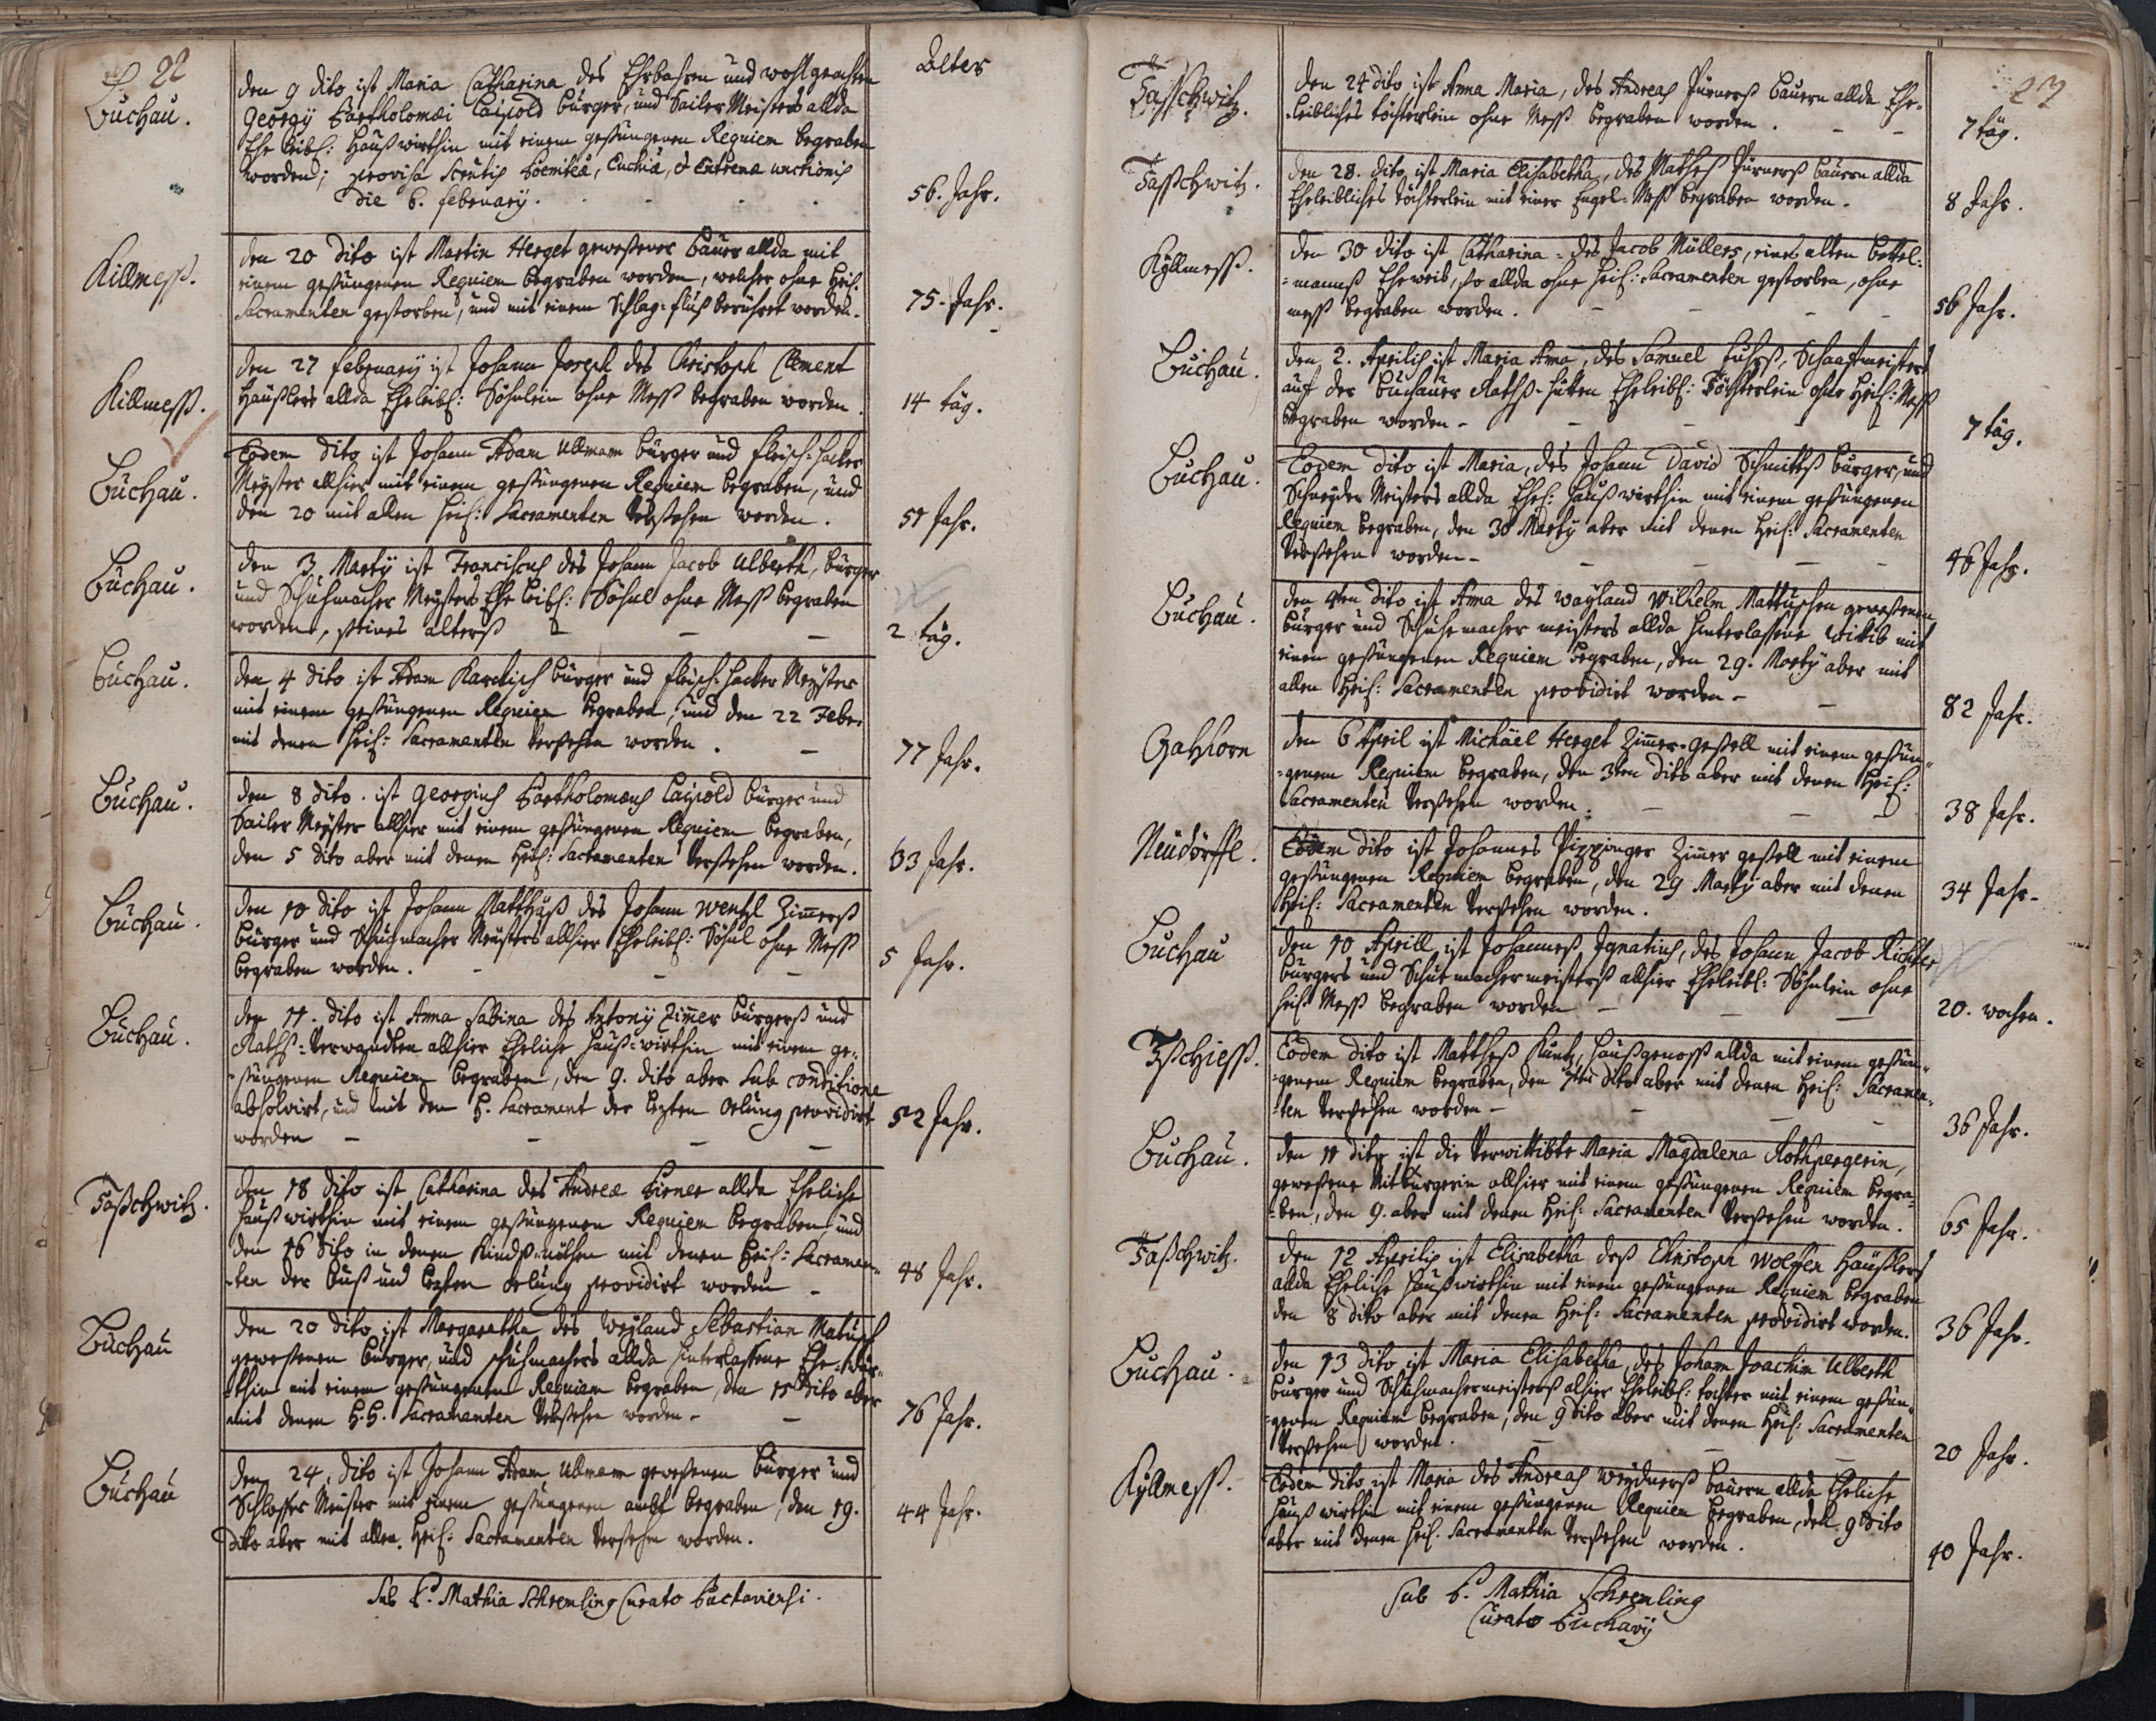 22
Alter
Buchau.
den 9 dito ist Maria Catharina des Ehrbahren und wohl geachten
Georgy Bartholomæi Laipold bürger, und Sailer Meisters allda
Ehe leibl: Haußwirthin mit einem gesungenen Requiem begraben
worden; provisa Sacntis Poeniteæ, Euchiæ, & Extremæ unctionis
die 6. february.
56. Jahr.
Killmess.
den 20 dito ist Martin Herget gewesener baur allda mit
einem gesungenen Requiem begraben worden, welcher ohne heil:
Sacramenten gestorben, und mit einem Schlag-fluß berühret worden.
75. Jahr.
Killmess.
den 27 february ist Johann Joseph des Christoph Clement
Häußlers allda Eheleibl: Söhnlein ohne Mess begraben worden.
14 täg.
Buchau.
Eodem dito ist Johann Adam Ullmann bürger und fleisch-hacker
Meyster allhier mit einem gesungenen Requiem begraben, und
den 20 mit allen heil: Sacramenten Versehen worden.
51 Jahr.
Buchau.
den 3 Marty ist Franciscus des Johann Jacob Ulberth, bürger
und Schuhmacher Meysters Ehe leibl: Söhnl ohne Mess begraben
worden, seines alterß
2 täg.
Buchau.
den 4 dito ist Adam Karlisch bürger und fleisch-hacker Meyster
mit einem gesungenen Requiem begraben, und den 22 Febr.
mit denen heil: Sacramenten Versehen worden.
77 Jahr.
Buchau.
den 8 dito. ist Georgius Bartholomæus Laipold bürger und
Sailer Meyster allhier mit einem gesungenen Requiem begraben,
den 5 dito aber mit denen heil: Sacramenten Versehen worden.
63 Jahr.
Buchau.
den 10 dito ist Johann Matthäß des Johann Wentzl Zimmerß
bürger und Schuhmacher Meysters allhier Eheleibl: Söhnl ohne Mess
begraben worden.
5 Jahr.
Buchau.
den 11. dito ist Anna Sabina des Antony Zimmer bürgerß und
Rathß-Verwandten allhier Eheliche Hauß-wirthin mit einem ge-
sungenen Requiem begraben, den 9. dito aber sub conditione
absolvirt, und mit dem H. Sacrament der lezten Oelung providirt
worden
52 Jahr.
Taßchwitz.
den 18 dito ist Catharina des Andreæ Birner allda Eheliche
Haußwirthin mit einem gesungenen Requiem begraben und
den 16 dito in denen Kindß-nöthen mit denen heil: Sacramen-
-ten der buß und lezten Oelung providirt worden
48 Jahr.
Buchau
den 20 dito ist Margaretha des Weyland Sebastian Matusch
gewesenen bürger, und schuhmachers allda hinterlassene Ehe-wür-
thin mit einem gesungenen Requiem begraben, den 15 dito aber
mit denen H.H. Sacramenten Versehen worden.
76 Jahr.
Buchau
den 24. dito ist Johann Adam Ullmann gewesenen bürger und
Schlosser Meister mit einem gesungenen ambt begraben, den 19.
dito aber mit allen heil: Sacramenten Versehen worden.
44 Jahr.
Sub P. Mathia Schremling Curato Buctaviensi.
23
Taßchwitz.
den 24 dito ist Anna Maria, des Andreas Pürnerß bauern allda Ehe-
leibliches töchterlein ohne Mess begraben worden.
7 täg.
Taßchwitz.
den 28. dito ist Maria Elisabetha, des Mathes Pürnerß bauern allda
Eheleibliches töchterlein mit einer Engel-Mess begraben worden.
8 Jahr.
Kyllmess.
den 30 dito ist Catharina des Jacob Müllers, eines alten bettel-
-mannß Eheweib, so allda ohne heil: Sacramenten gestorben, ohne
mess begraben worden.
56 Jahr.
Buchau.
den 2. Aprilis ist Maria Anna, des Samuel Fuhrß, Schaafmeisters
auf der Buchauer Rathß-hütten Eheleibl: Töchterlein ohne heil: Mess
begraben worden
7 täg.
Buchau.
Eodem dito ist Maria, des Johann David Schmittß bürger, und
Schneyder Meisters allda Ehel: haußwirthin mit einem gesungenen
Requiem begraben, den 30 Marty aber mit denen heil: Sacramenten
Versehen worden
46 Jahr.
Buchau.
den 4ten dito ist Anna des wayland Wilhelm Mattuschen gewesenen
bürger und Schuhmacher meisters allda hinterlassene wittib mit
einem gesungenen Requiem begraben, den 29. Marty aber mit
allen heil: Sacramenten providirt worden
82 Jahr.
Gabhorn
den 6 April ist Michäel Herget Zimmer-gesell mit einem gesun-
-genem Requiem begraben, den 3ten dito aber mit denen heil:
Sacramenten Versehen worden.
38 Jahr.
Neüdörffl.
Eodem dito ist Johannes Pippinger Zimmer gesell mit einem
gesungenen Requiem begraben, den 29 Marty aber mit denen
heil: Sacramenten Versehen worden.
34 Jahr.
Buchau
den 10 Aprill ist Johanneß Ignatius, des Johann Jacob Richter
bürgers und Schuhmachermeisterß allhier Eheleibl: Söhnlein ohne
heil: Mess begraben worden
20. wochen.
Tßchiess.
Eodem dito ist Mattheß Kuntz, Haußgenoss allda mit einem gesun-
-genem Requiem begraben, den 7ten dito aber mit denen heil: Sacramen-
-ten Versehen worden
36 Jahr.
Buchau.
den 11 dito ist die Verwittibte Maria Magdalena Rothpergerin,
gewesene Mitbürgerin allhier mit einem gesungenen Requiem begra-
-ben, den 9. aber mit denen heil: Sacramenten Versehen worden.
65 Jahr.
Taßchwitz.
den 12 Aprilis ist Elisabetha deß Christoph Wolffen Häußlers
allda Eheliche haußwirthin mit einem gesungenen Requiem begraben
den 8 dito aber mit denen heil: Sacramenten providirt worden.
36 Jahr.
Buchau.
den 13 dito ist Maria Elisabetha, des Johann Joachim Ulberth
bürger und Schuhmachermeisterß alhier Eheleibl: tochter mit einem gesun-
-genen Requiem begraben, den 9 dito aber mit denen heil: Sacramenten
Versehen worden.
20 Jahr.
Kyllmess.
Eodem dito ist Maria des Andreas Weydnerß bauern allda Eheliche
haußwirthin mit einem gesungenen Requiem begraben, den 9 dito
aber mit denen heil. Sacramenten Versehen worden.
40 Jahr.
Sub P. Mathia Schremling
Curato Buchavy